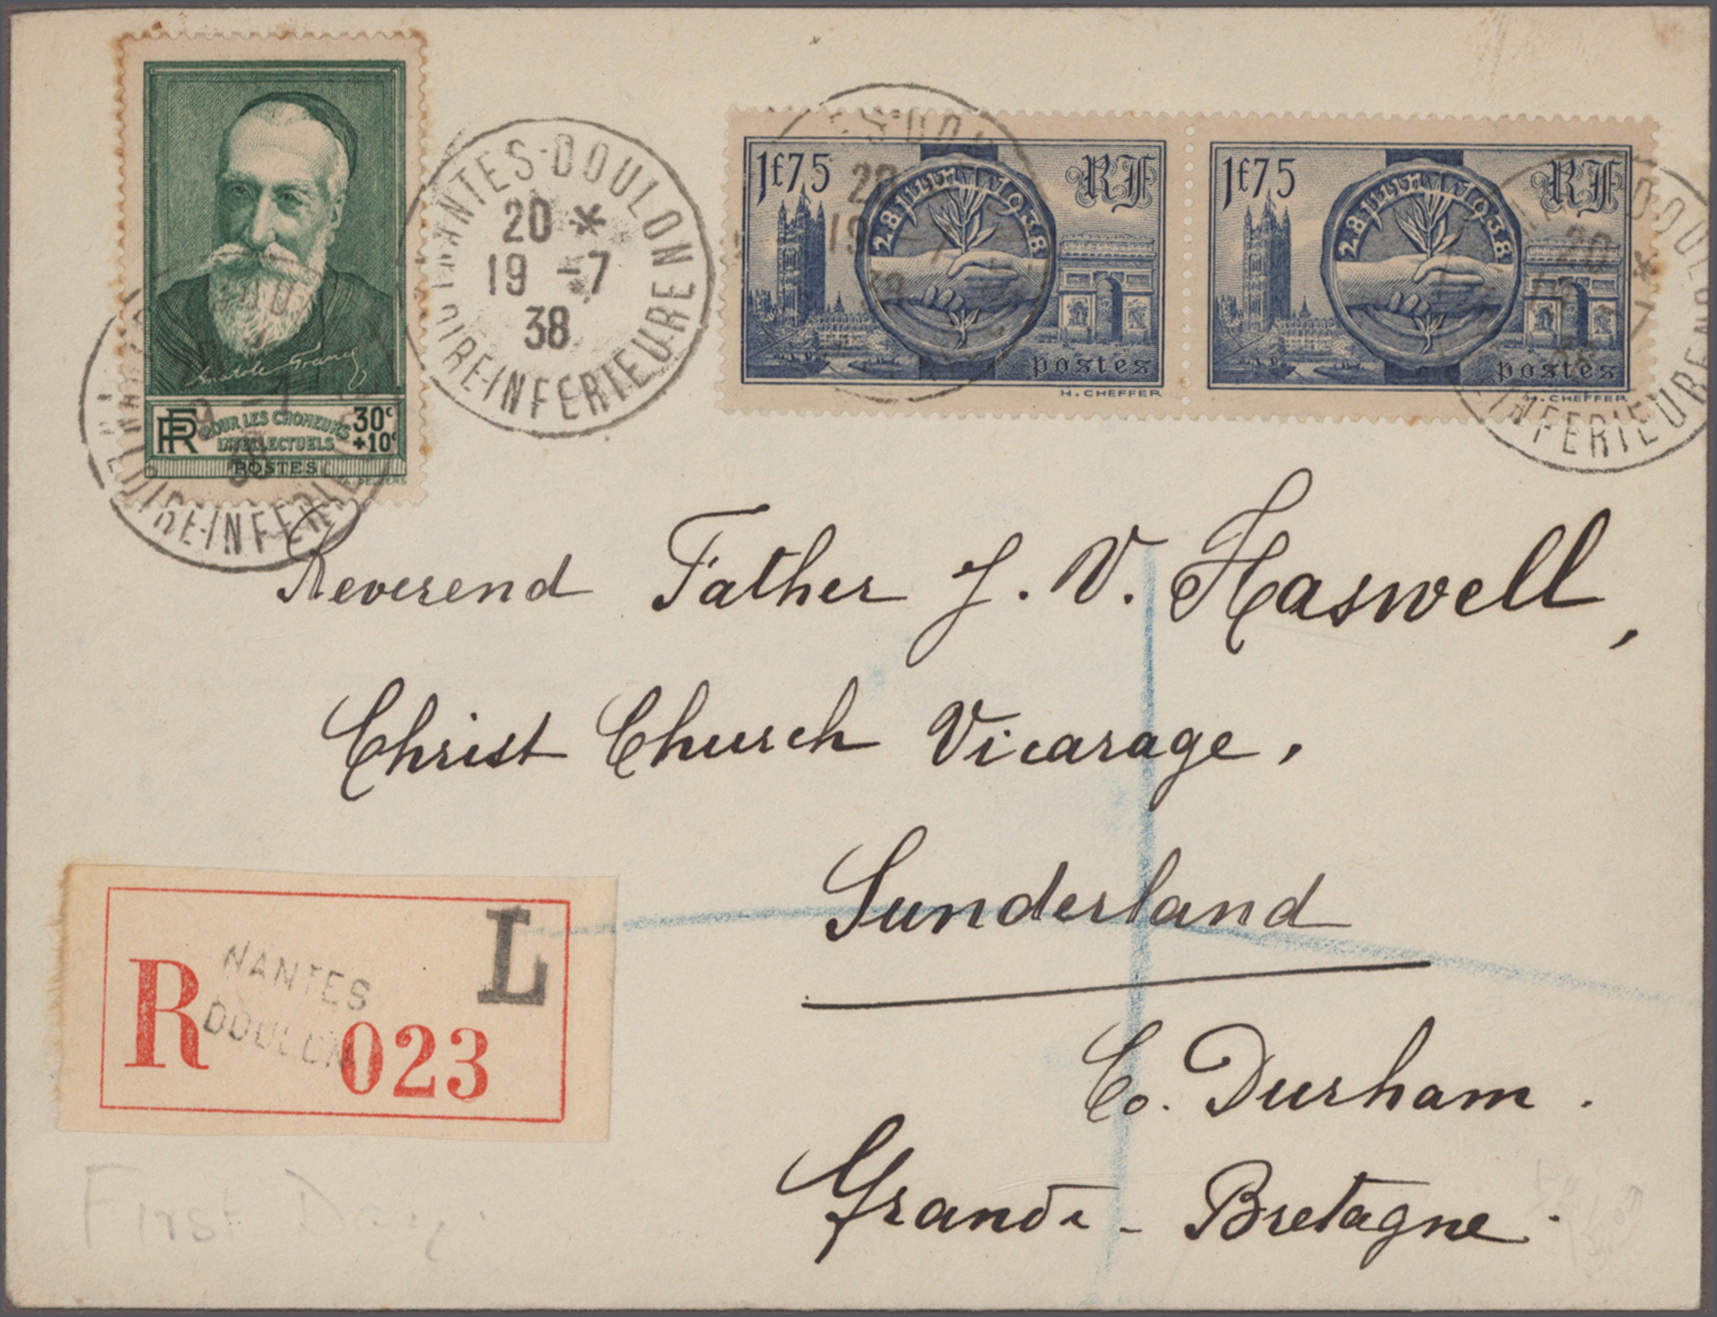 Anatole France
RF POUR LES CHOMEURS 30c
INTELLECTUELS +10c
POSTES
LOIRE-INFERIEURE
NANTES-DOULON
20 *
19 -7
38
LOIRE-INFERIEURE
1f75 RF
28 JUIN 1938
postes
H. CHEFFER
1f75 RF
28 JUIN 1938
postes
H. CHEFFER
20 *
38
INFERIEURE
Reverend Father J. V. Haswell,
Christ Church Vicarage,
Sunderland
Co. Durham.
Grande-Bretagne.
L
NANTES
DOULON
R 023
First Day.